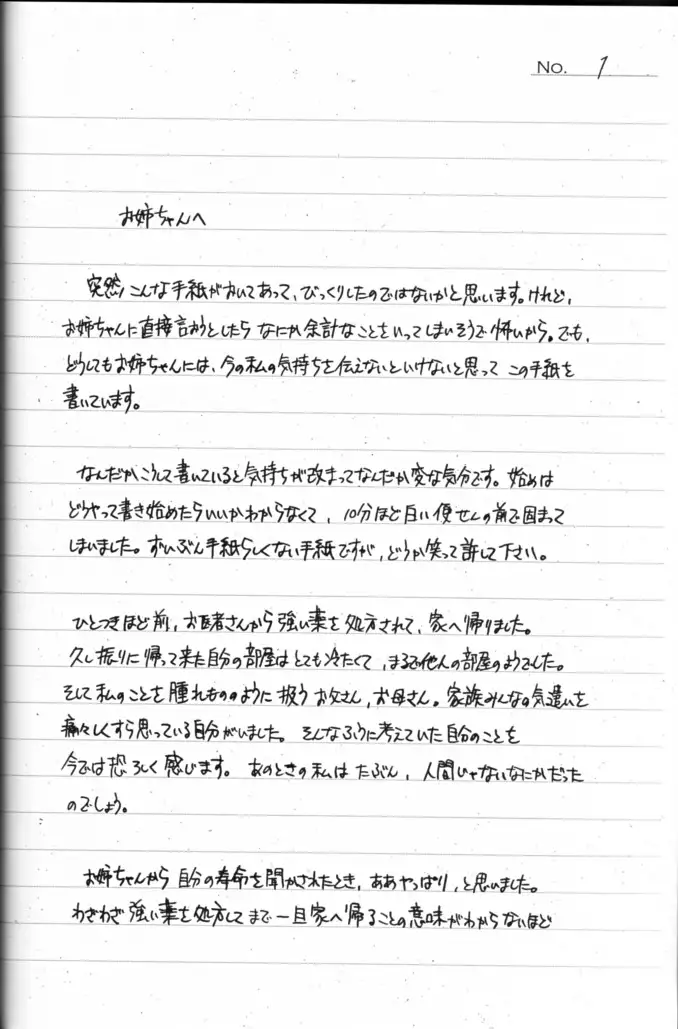 No. 1
お姉ちゃんへ
突然こんな手紙がおいてあって、びっくりしたのではないかと思います。けれど、
お姉ちゃんに直接言おうとしたら なにか余計なことをいってしまいそうで怖いから。でも、
どうしてもお姉ちゃんには、今の私の気持ちを伝えないといけないと思って この手紙を
書いています。
なんだかこうして書いていると気持ちが改まってなんだか変な気分です。始めは
どうやって書き始めたらいいかわからなくて、10分ほど白い便せんの前で固まって
しまいました。ずいぶん手紙らしくない手紙ですが、どうか笑って許して下さい。
ひとつきほど前、お医者さんから強い薬を処方されて、家へ帰りました。
久し振りに帰って来た自分の部屋はとても冷たくて、まるで他人の部屋のようでした。
そして私のことを腫れもののように扱うお父さん、お母さん。家族みんなの気遣いを
痛々しくすら思っている自分がいました。そんなふうに考えていた自分のことを
今では恐ろしく感じます。あのときの私は たぶん、人間じゃないなにかだった
のでしょう。
お姉ちゃんから自分の寿命を聞かされたとき、ああやっぱり、と思いました。
わざわざ強い薬を処方してまで一旦家へ帰ることの意味がわからないほど